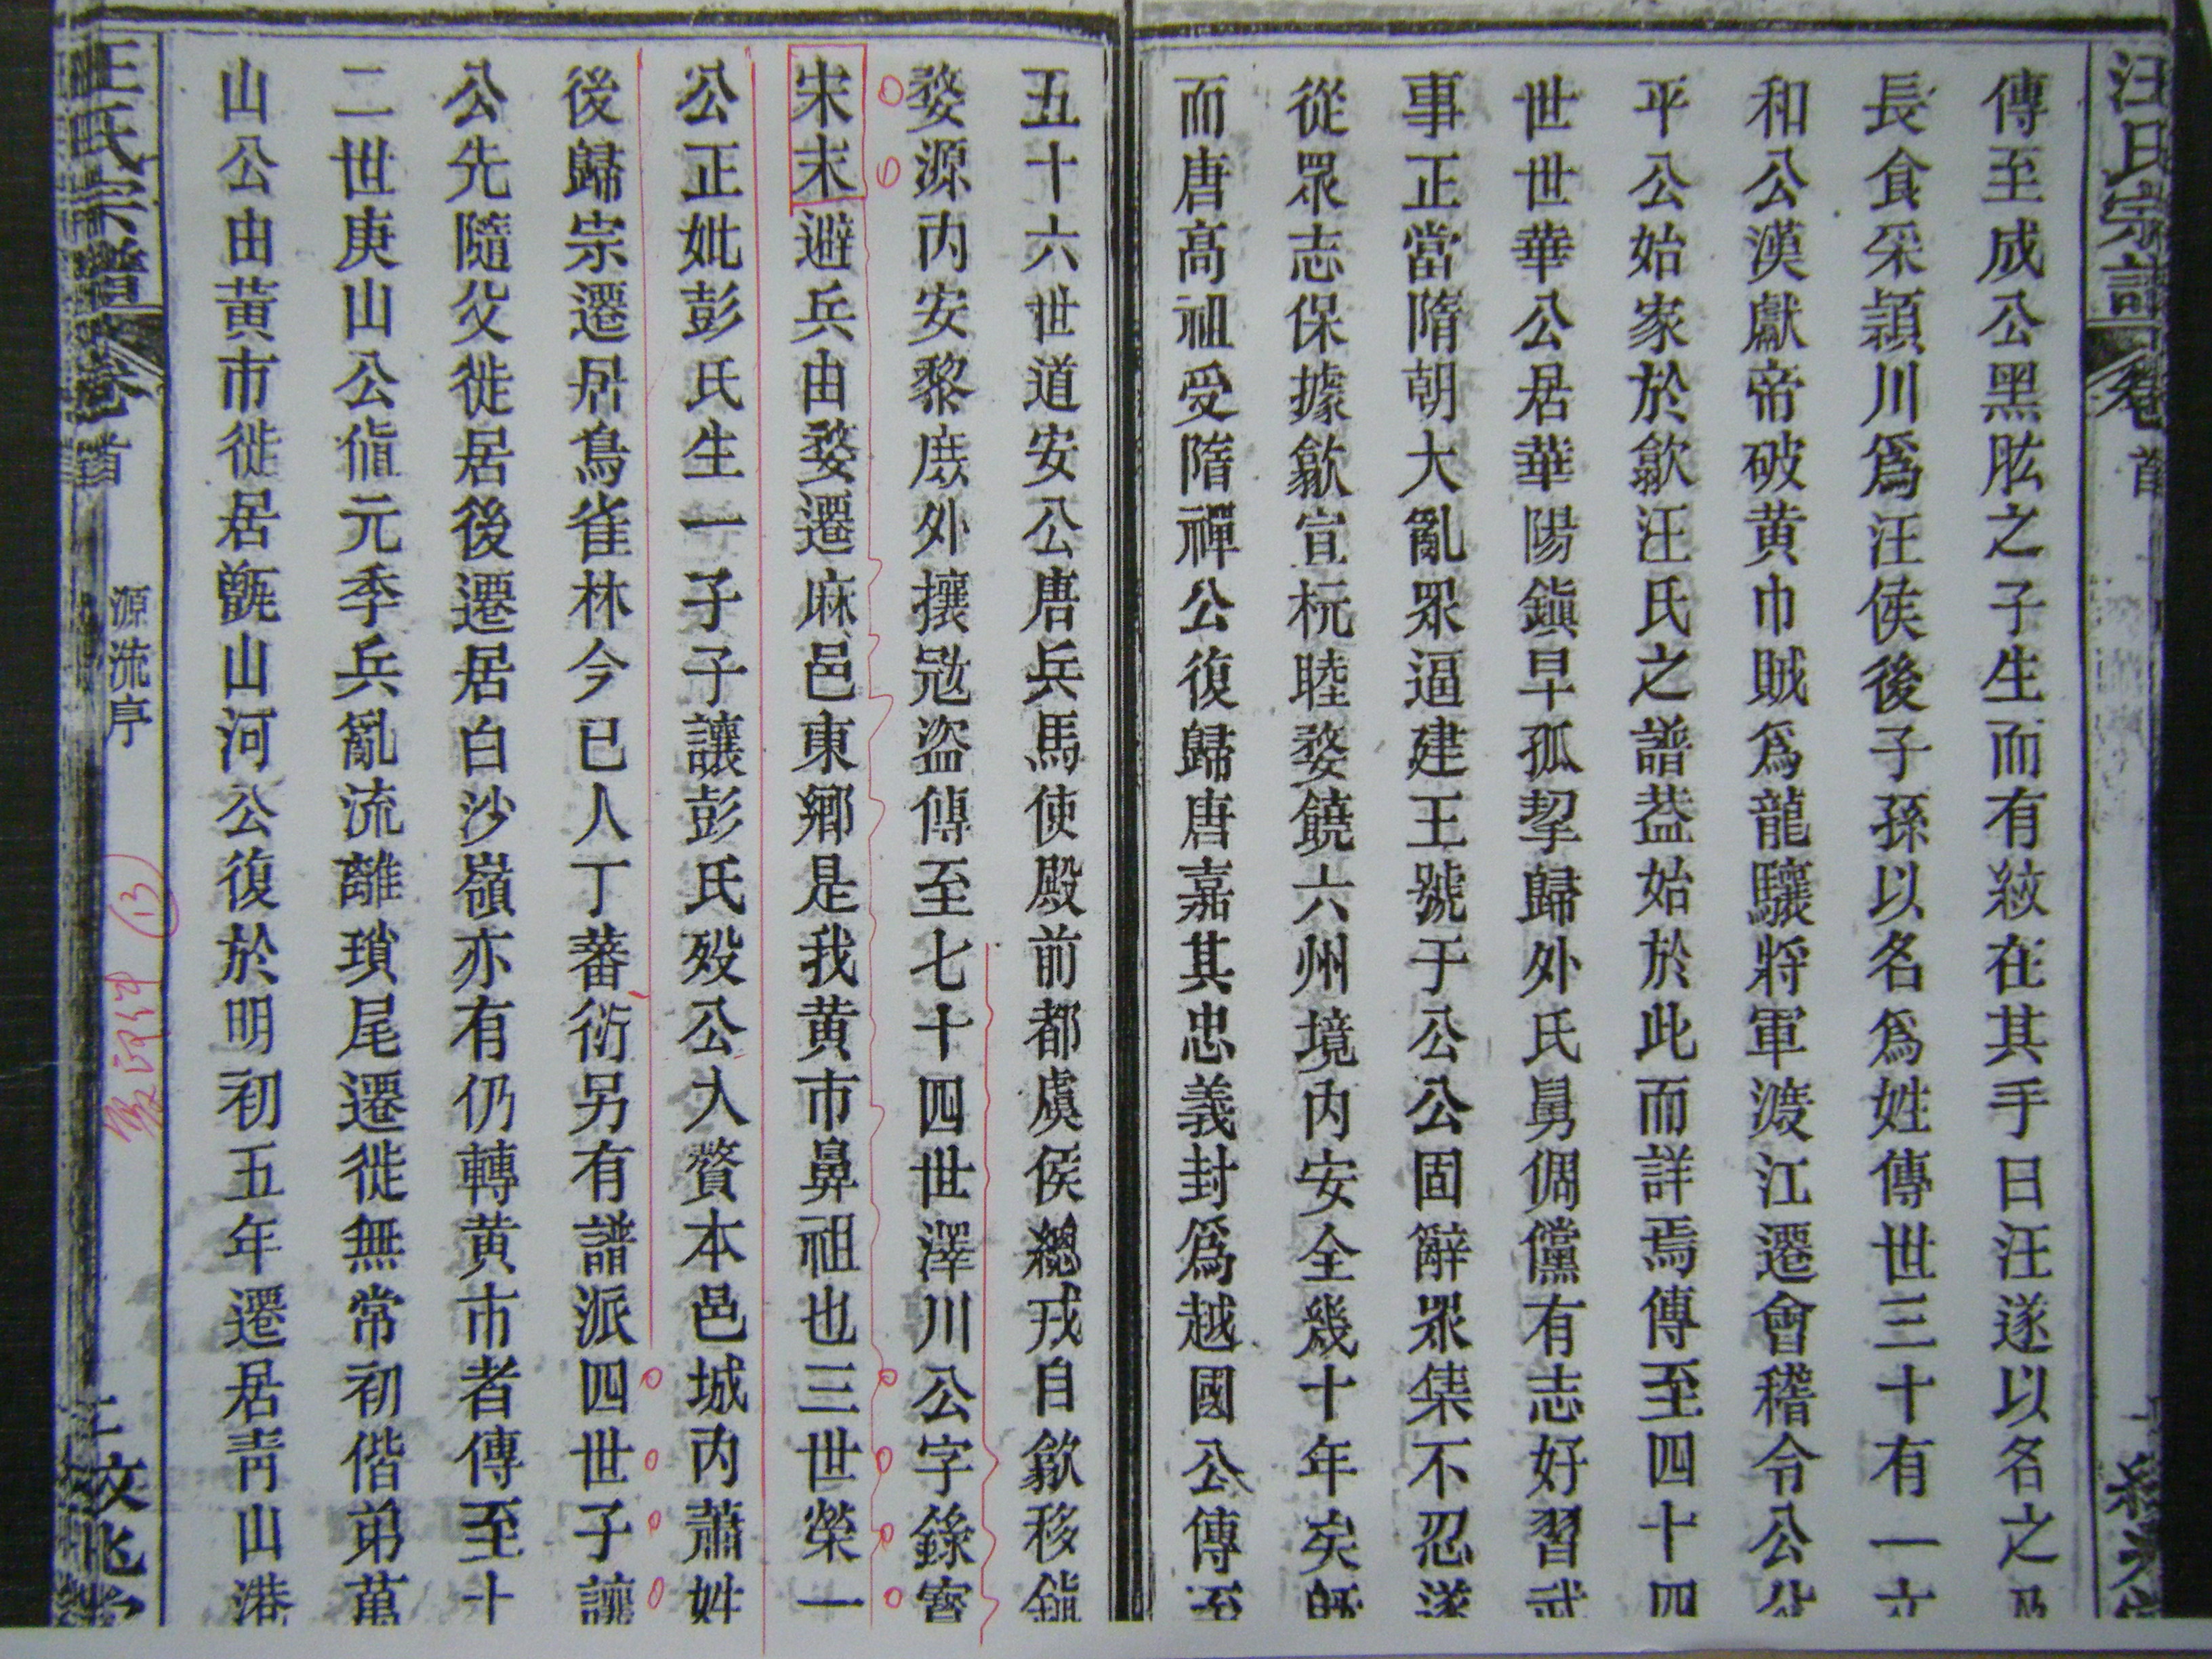 汪氏宗譜
卷
首
傳至成公黑肱之子生而有紋在其手曰汪遂以名之乃
長食采潁川爲汪侯後子孫以名爲姓傳世三十有一文
和公漢獻帝破黄巾賊爲龍驤將軍渡江遷會稽令公
平公始家於歙汪氏之譜葢始於此而詳焉傳至四十四
世世華公居華陽鎭早孤挈歸外氏舅倜儻有志好習武
事正當隋朝大亂眾逼建王號于公公固辭眾集不忍遂
從眾志保據歙宣杭睦婺饒六州境内安全幾十年矣
而唐高祖受隋禪公復歸唐嘉其忠義封爲越國公傳至
五十六世道安公唐兵馬使殿前都虞侯總戎自歙移鎭
婺源内安黎庶外攘冦盜傳至七十四世澤川公字錄窨
宋末避兵由婺遷麻邑東鄉是我黄市鼻祖也三世榮一
公正妣彭氏生一子子讓彭氏歿公入贅本邑城内蕭姓
後歸宗遷居鳥雀林今已人丁蕃衍另有譜派四世子讓
公先隨父徙居後遷居白沙嶺亦有仍轉黄市者傳至十
二世庚山公值元季兵亂流離瑣尾遷徙無常初偕弟萬
山公由黄市徙居甑山河公復於明初五年遷居靑山港
汪氏宗譜
卷
首
源流序
13